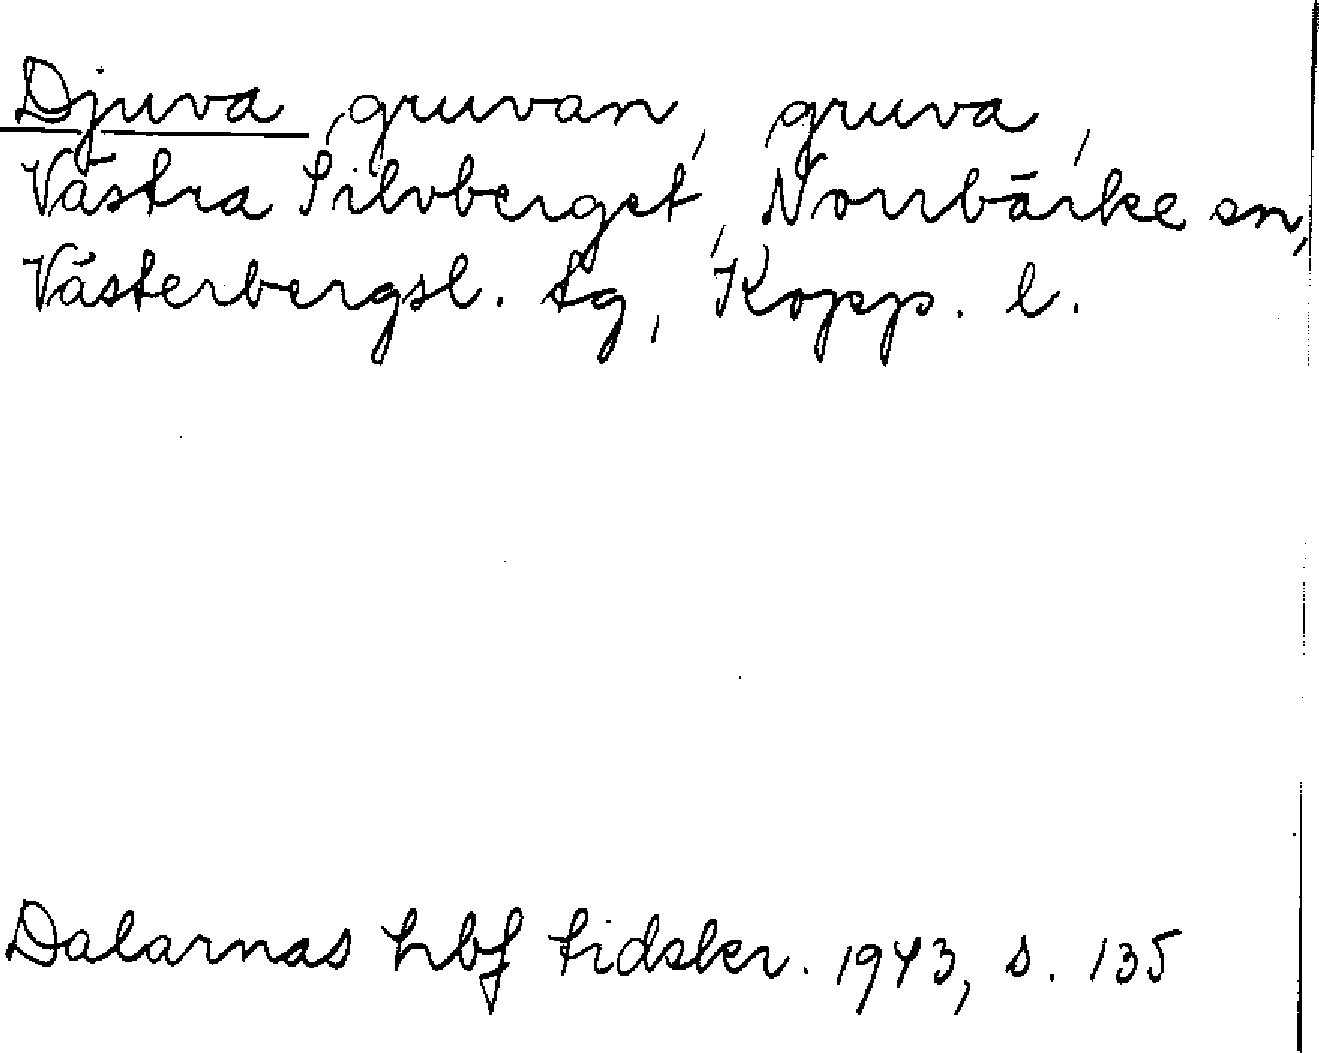 Djuva gruvan, gruva,
Västra Silvberget, Norrbärke sn,
Västerbergsl. tg, Kopp. l.
Dalarnas hbf tidskr. 1943, s. 135